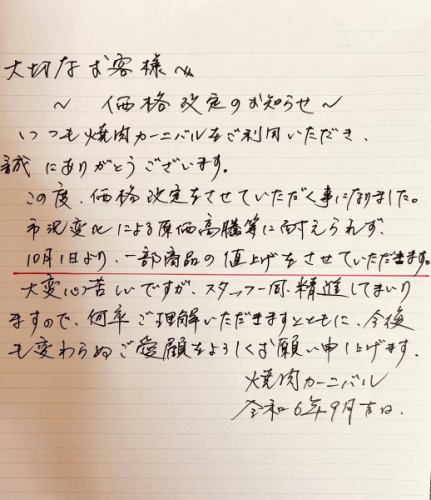 大切なお客様へ
～ 価格改定のお知らせ ～
いつも焼肉カーニバルをご利用いただき、
誠にありがとうございます。
この度、価格改定をさせていただく事になりました。
市況変化による原価高騰等に耐えられず、
10月1日より、一部商品の値上げをさせていただきます。
大変心苦しいですが、スタッフ一同、精進してまいり
ますので、何卒ご理解いただきますとともに、今後
も変わらぬご愛顧をよろしくお願い申し上げます。
焼肉カーニバル
令和6年9月吉日.